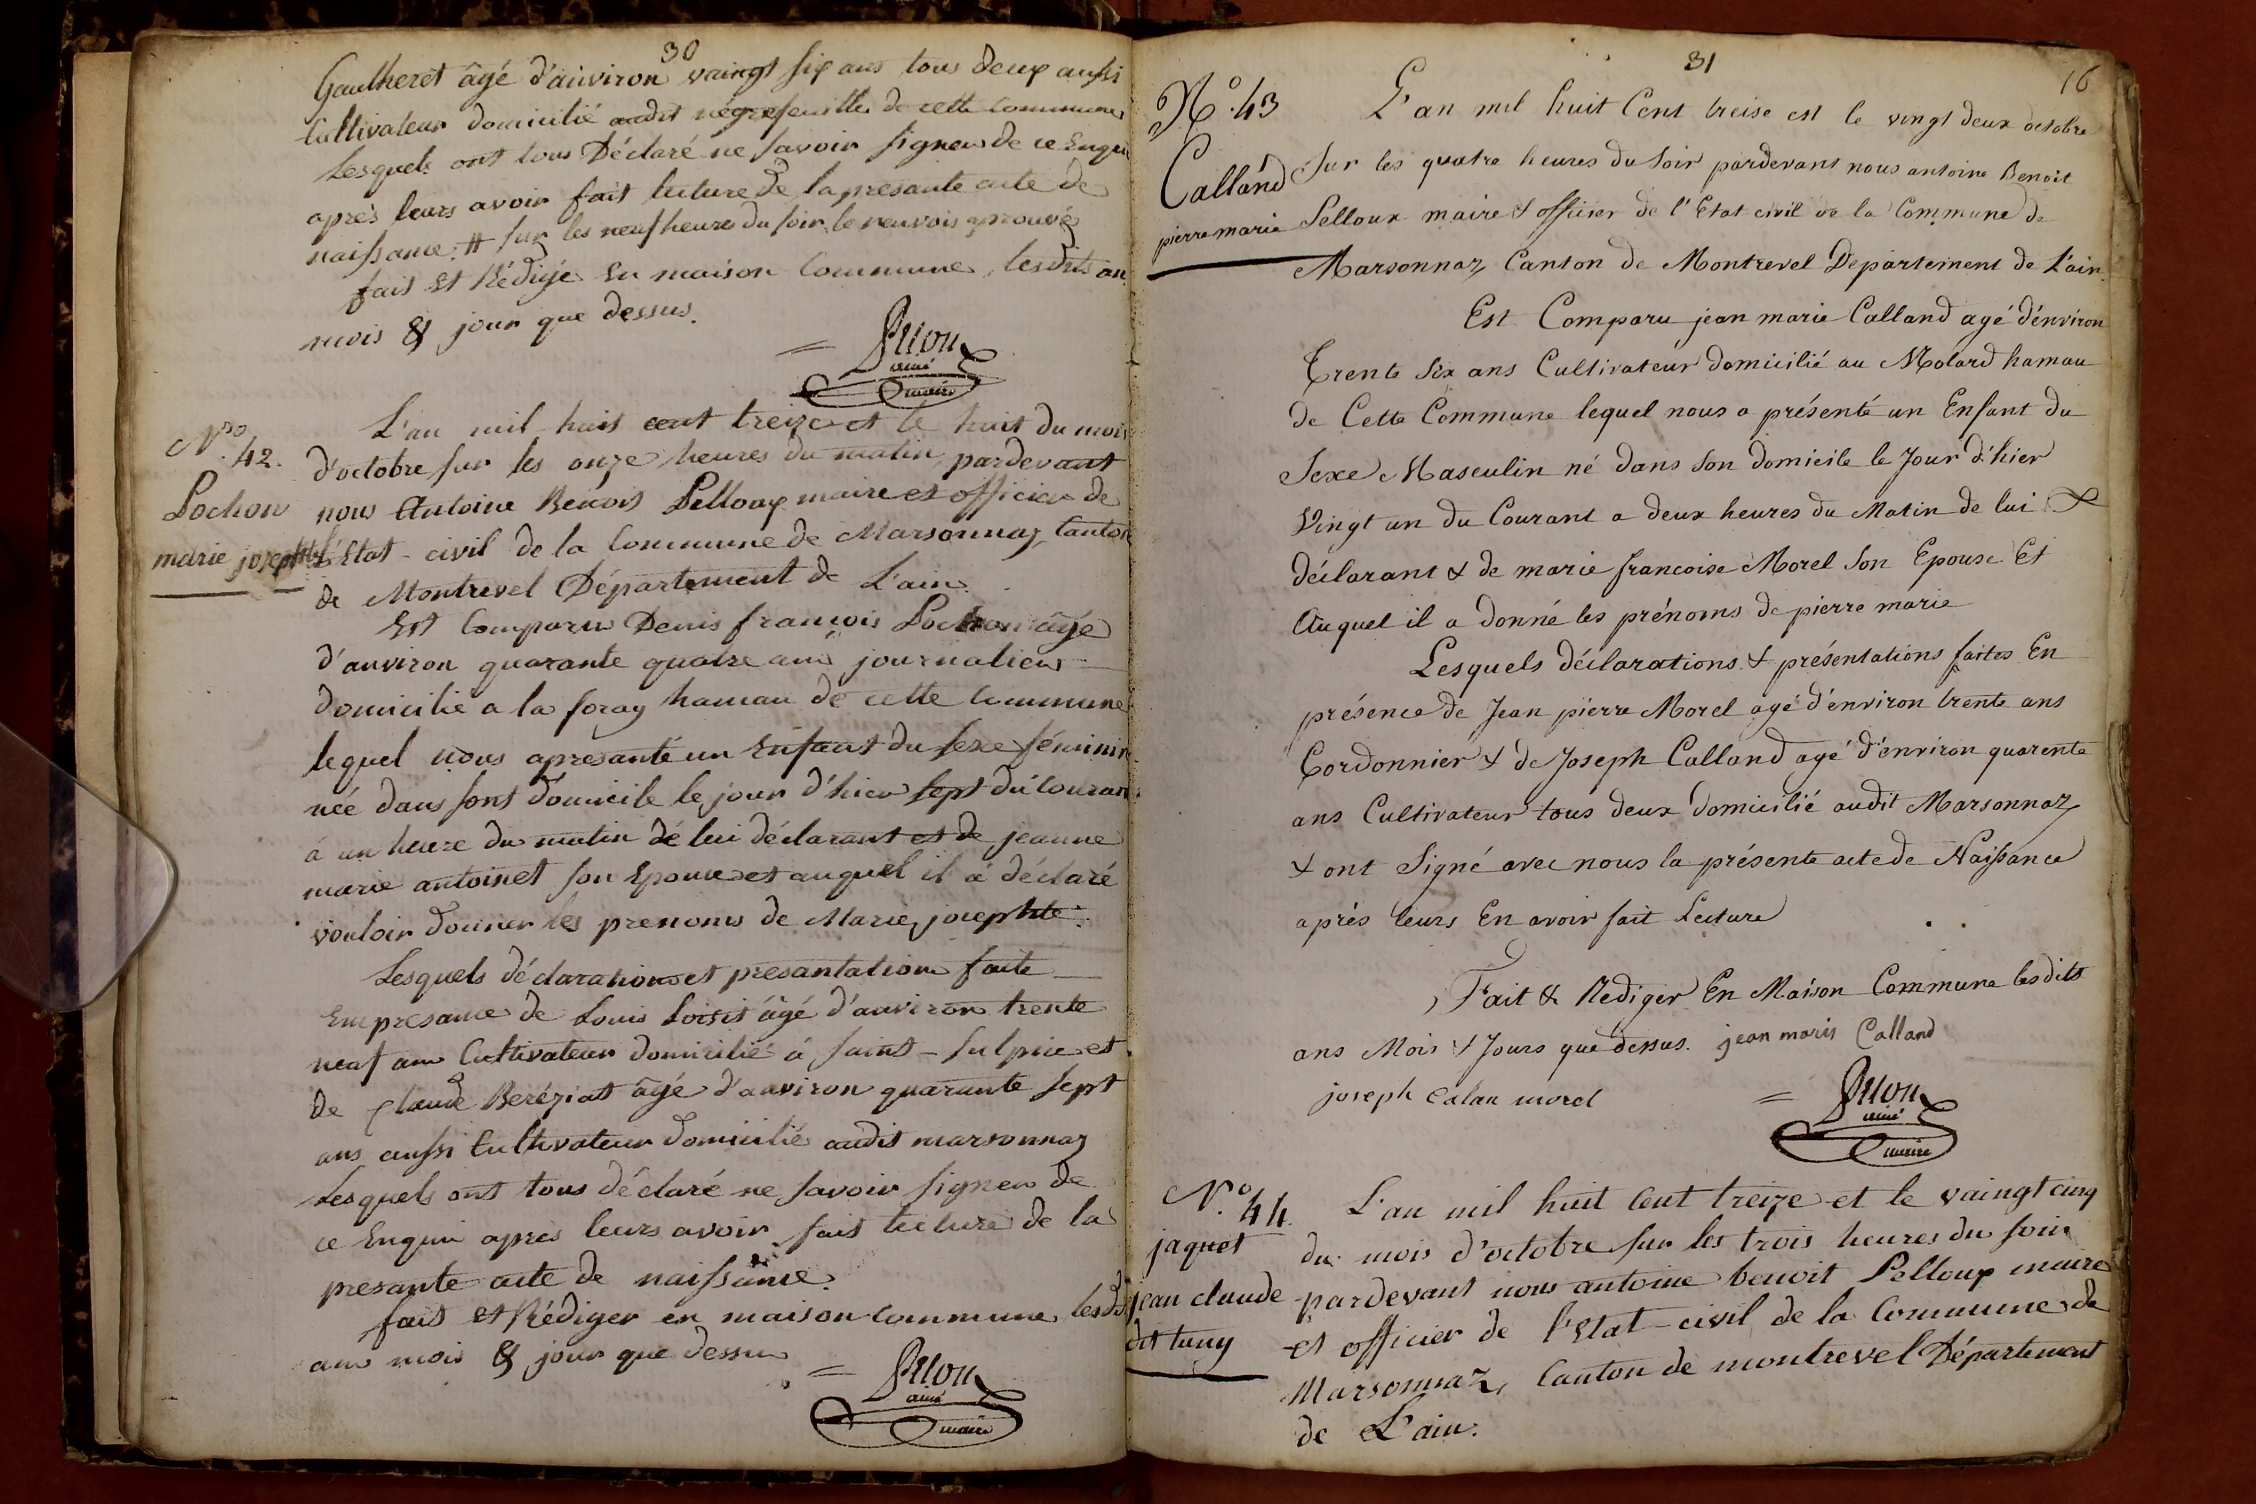 30
Gaulheret âgé d'anviron vaingt six ans tous deux aussi
Cultivateur domicilié audit négrefeuille de cette commune
Lesquels ont tous Déclaré ne savoir signer de ce Enquis
après leurs avoir fait lecture de la présante acte de
naissance. # sur les neuf heures du soir le renvois aprouvés
fait Et Rédigé En maison Commune, lesdits an
mois & jour que dessus.
ainé
maire
N.° 42.
Pochon
marie josephte
L'an mil huit cent treize et le huit du mois
d'octobre sur les onze heures du matin, pardevant
nous Antoine Benoit Pelloux maire et officier de
l'Etat-civil de la Commune de Marsonnaz, Canton
de Montrevel Département de L'ain.
Est Comparu Denis françois Pochon âgé
d'anviron quarante quatre ans journalier
domicilié a la foray hamau de cette commune
lequel nous apresanté un Enfant du sexe féminin
née dans sont domicile le jour d'hier sept du Courant
à un heure du matin de lui déclarant et de jeanne
marie antoinet son Epouse et auquel il a déclaré
vouloir donner les prenoms de Marie, josephte.
Lesquels déclarations et presantation faite
En presance de Louis Loisit âgé d'anviron trente
neuf ans Cultivateur domicilié á saint-sulpice et
de claude Beréziat âgé d'anviron quarante sept
ans aussi Cultivateur domicilié audit marsonnaz
Lesquels ont tous déclaré ne savoir signer de
ce Enquis apres leurs avoir fait lecture de la
presante acte de naissance.
fait et Rédiger en maison commune lesdits
ans mois & jour que dessus
ainé
maire
31
16
N.° 43
Calland
pierre marie
L'an mil huit Cent treise est le vingt deux octobre
Sur les quatre heures du Soir pardevant nous antoine Benoit
Pelloux maire & officier de l'Etat civil de la Commune de
Marsonnaz, Canton de Montrevel Departement de L'ain.
Est Comparu jean marie Calland agé d'énviron
Trente Six ans Cultivateur domicilié au Molard hamau
de Cette Commune lequel nous a présenté un Enfant du
Sexe Masculin né dans Son domicile le Jour d'hier
Vingt un du Courant a deux heures du Matin de lui &
déclarant & de marie francoise Morel Son Epouse Et
Auquel il a donné les prénoms de pierre marie
Lesquels déclarations & présentations faites En
présence de Jean pierre Morel agé d'énviron trente ans
Cordonnier & de Joseph Calland agé d'énviron quarente
ans Cultivateur tous deux domicilié audit Marsonnaz
& ont Signé avec nous la présente acte de Naissance
aprés leurs En avoir fait Lecture
Fait & Rediger En Maison Commune lesdits
ans Mois & Jours que dessus. jean marie Calland
joseph calan morel
ainé
maire
N.° 44.
jaquet
jean claude
dit tuny
L'an mil huit Cent treize et le vaingt cinq
du mois d'octobre sur les trois heures du soir
pardevant nous antoine benoit Pelloux maire
et officier de l'Etat-civil de la Commune de
Marsonnaz, Canton de montrevel Département
de L'ain.